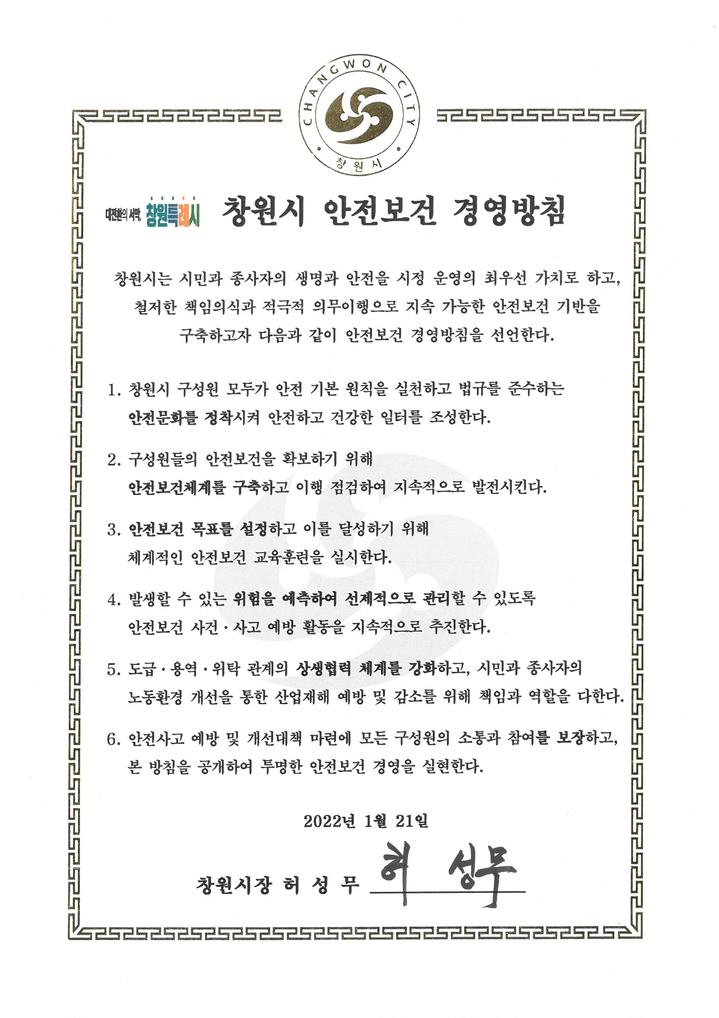 CHANGWON CITY
창원시
대전환의 서막, 창원특례시
창원시 안전보건 경영방침
창원시는 시민과 종사자의 생명과 안전을 시정 운영의 최우선 가치로 하고,
철저한 책임의식과 적극적 의무이행으로 지속 가능한 안전보건 기반을
구축하고자 다음과 같이 안전보건 경영방침을 선언한다.
1. 창원시 구성원 모두가 안전 기본 원칙을 실천하고 법규를 준수하는
안전문화를 정착시켜 안전하고 건강한 일터를 조성한다.
2. 구성원들의 안전보건을 확보하기 위해
안전보건체계를 구축하고 이행 점검하여 지속적으로 발전시킨다.
3. 안전보건 목표를 설정하고 이를 달성하기 위해
체계적인 안전보건 교육훈련을 실시한다.
4. 발생할 수 있는 위험을 예측하여 선제적으로 관리할 수 있도록
안전보건 사건·사고 예방 활동을 지속적으로 추진한다.
5. 도급·용역·위탁 관계의 상생협력 체계를 강화하고, 시민과 종사자의
노동환경 개선을 통한 산업재해 예방 및 감소를 위해 책임과 역할을 다한다.
6. 안전사고 예방 및 개선대책 마련에 모든 구성원의 소통과 참여를 보장하고,
본 방침을 공개하여 투명한 안전보건 경영을 실현한다.
2022년 1월 21일
창원시장 허 성 무 허 성무